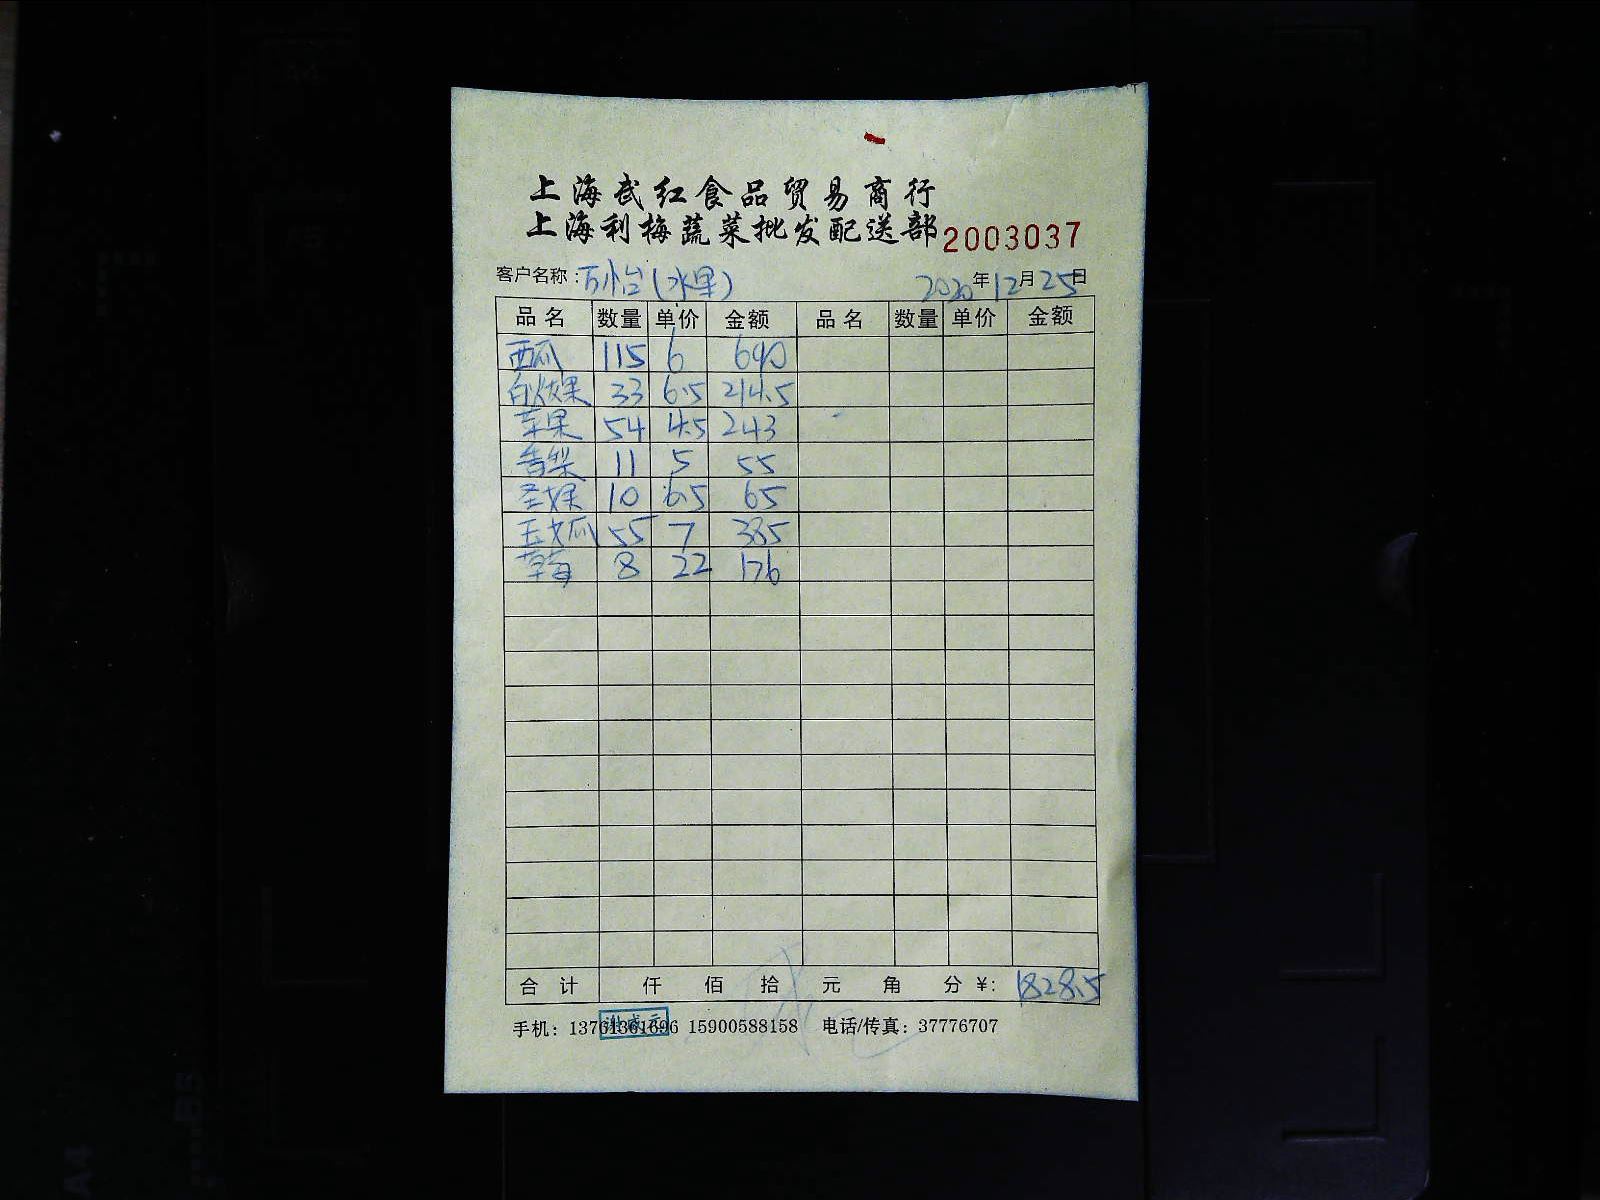 上海武红食品贸易商行
上海利梅蔬菜批发配送部 2003037
客户名称：万怡(水果) 2020年12月25日
品名 数量 单价 金额 品名 数量 单价 金额
西瓜 115 6 690
白火龙果 33 6.5 214.5
苹果 54 4.5 243
香梨 11 5 55
圣女果 10 6.5 65
玉女瓜 55 7 385
草莓 8 22 176
合计 仟 佰 拾 元 角 分 ¥: 1828.5
手机：13761361696 15900588158 电话/传真：37776707